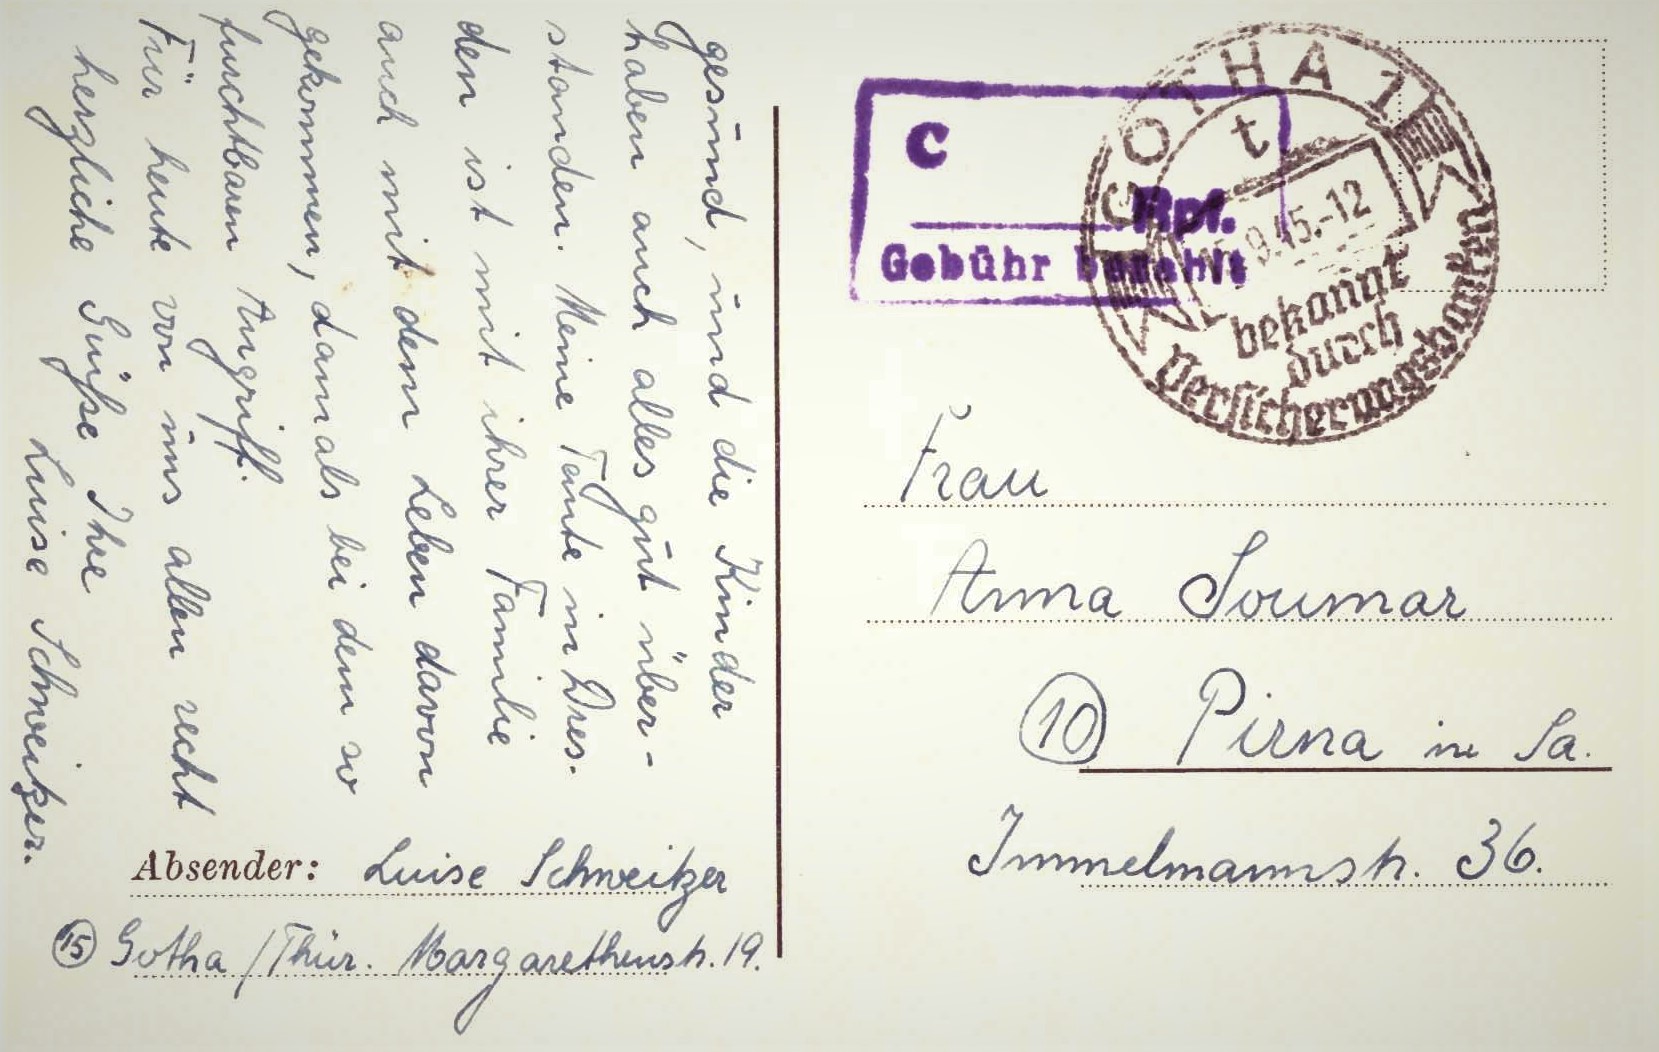 gesund, und die Kinder
haben auch alles gut über-
standen. Meine Tante in Dres.
den ist mit ihrer Familie
auch mit dem Leben davon
gekommen, damals bei dem so
furchtbaren Angriff.
Für heute von uns allen recht
herzliche Grüße Ihre
Luise Schweitzer.
Absender: Luise Schweitzer
(15) Gotha / Thür. Margarethenstr. 19.
C
Rpf.
Gebühr bezahlt
GOTHA 1
t
9.45.-12
bekannt
durch
Versicherungsbanken
Frau
Anna Soumar
(10) Pirna in Sa.
Immelmannstr. 36.